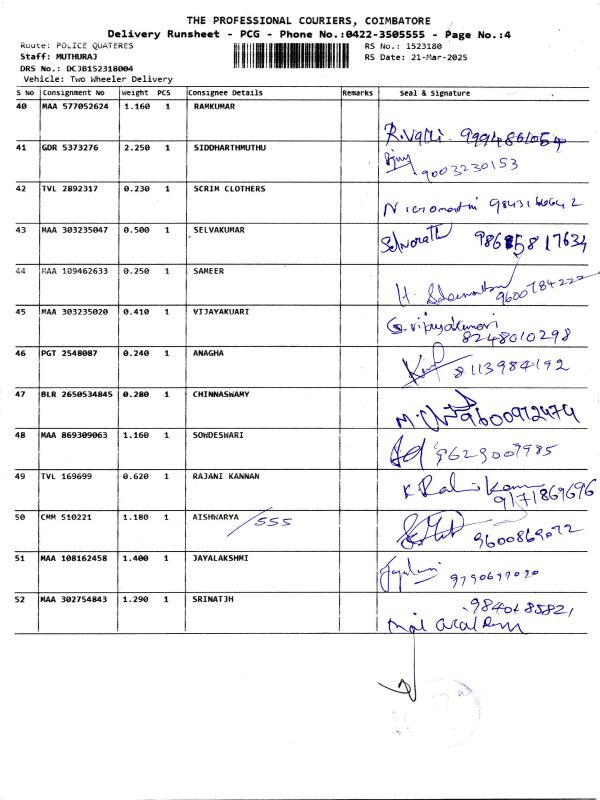 THE PROFESSIONAL COURIERS, COIMBATORE
Delivery Runsheet - PCG - Phone No.:0422-3505555 - Page No.:4
Route: POLICE QUATERES RS No.: 1523180
Staff: MUTHURAJ RS Date: 21-Mar-2025
DRS No.: DCJB152318004
Vehicle: Two Wheeler Delivery
S No Consignment No Weight PCS Consignee Details Remarks Seal & Signature
40 MAA 577052624 1.160 1 RAMKUMAR
R.Valli 9994861054
41 GDR 5373276 2.250 1 SIDDHARTHMUTHU
9003230153
42 TVL 2892317 0.230 1 SCRIM CLOTHERS
9843166642
43 MAA 303235047 0.500 1 SELVAKUMAR
44 MAA 109462633 0.250 1 SAMEER
9600784220
45 MAA 303235020 0.410 1 VIJAYAKUARI
G.vijayakumari
8248010298
46 PGT 2548087 0.240 1 ANAGHA
8113984192
47 BLR 2650534845 0.280 1 CHINNASWAMY
9600972474
48 MAA 869309063 1.160 1 SOWDESWARI
9629007985
49 TVL 169699 0.620 1 RAJANI KANNAN
9171869696
50 CMM 510221 1.180 1 AISHWARYA /555
9600869072
51 MAA 108162458 1.400 1 JAYALAKSHMI
52 MAA 302754843 1.290 1 SRINATJH